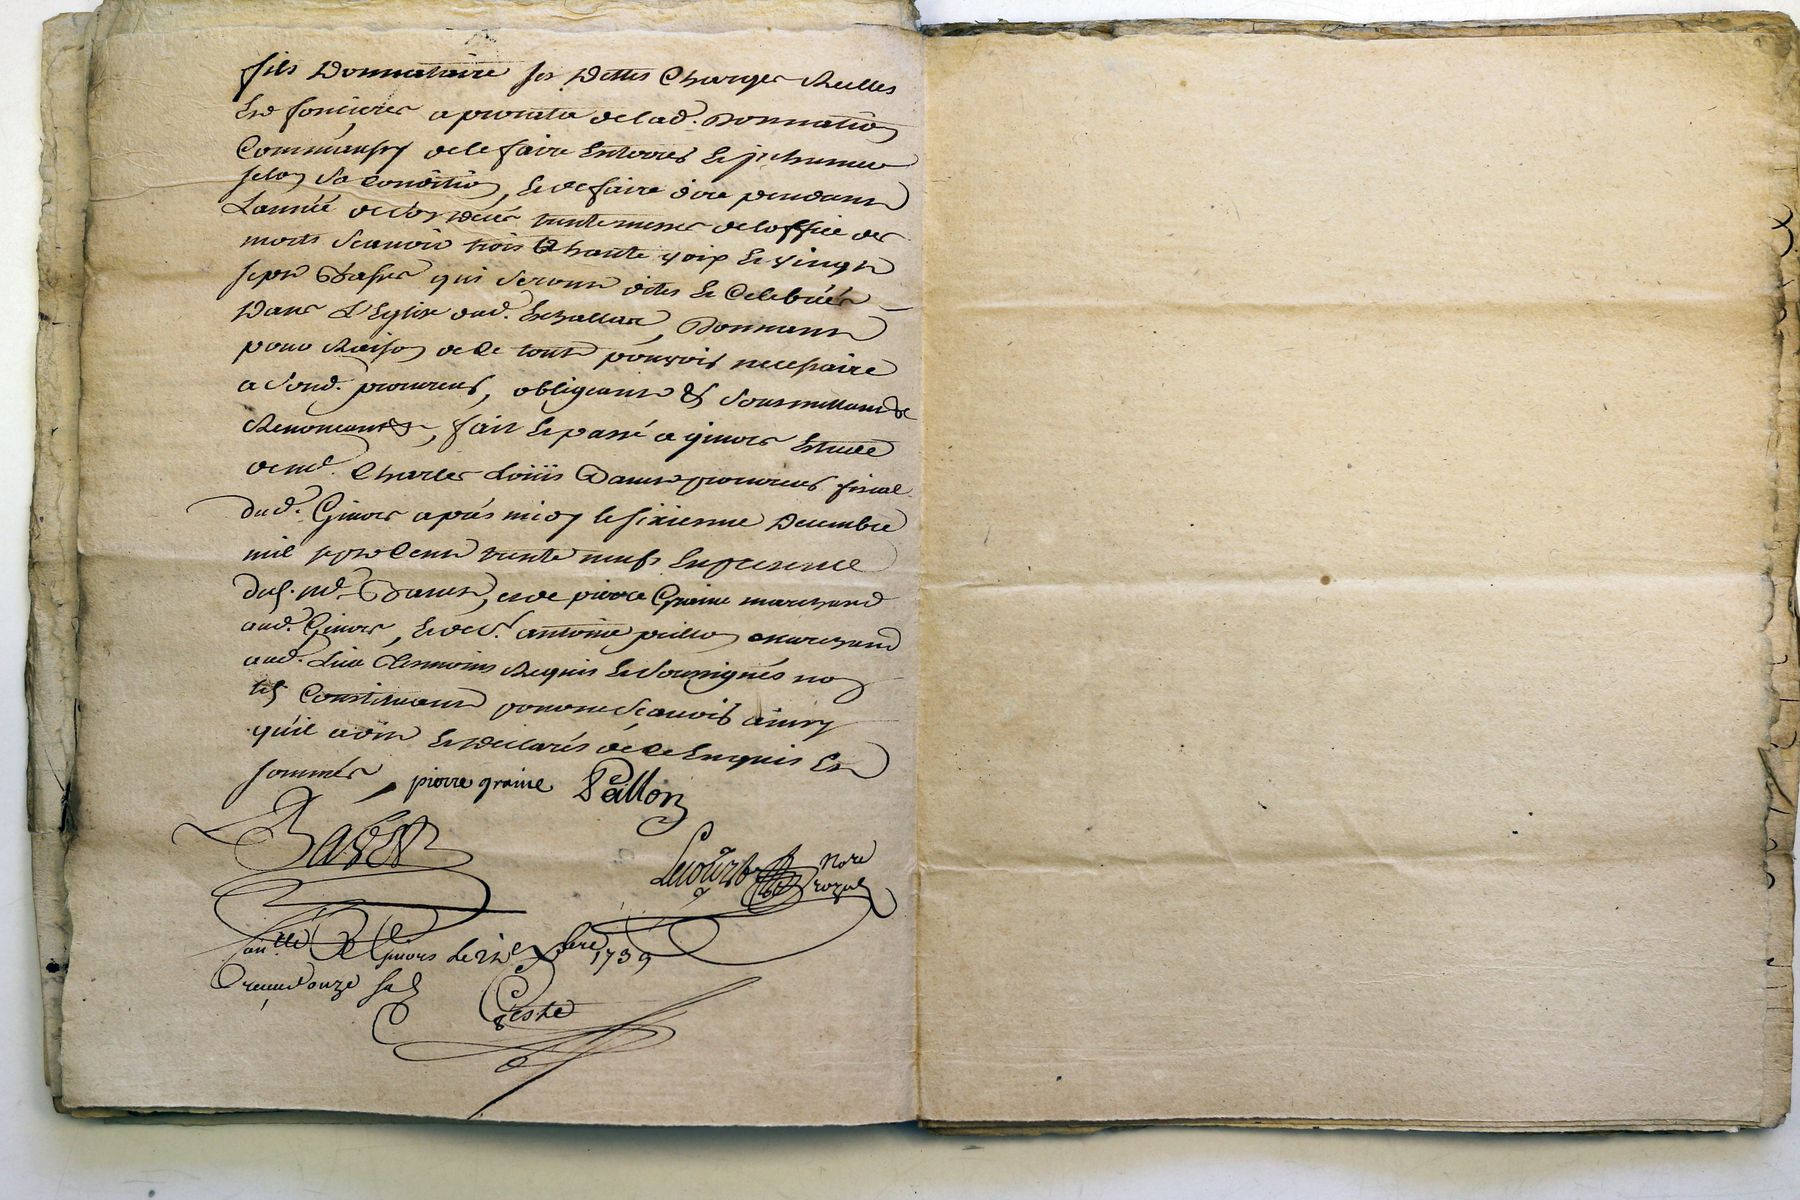 fils Donnataire ses Dettes Charges Reelles
Et foncieres a prorata de lad. Donnation
Comme aussy de le faire Enterrer et jnhumer
selon sa Condition, et de faire dire pendant
Lannée de son decés trente messes de loffice des
morts Scavoir trois a haute voix et vingt
sept Basses qui seront dites et Celebrées
Dans L'Eglise dud. Eschallas, Donnant
pour Raison de Ce tout pouvoir necessaire
a sond. procureur, obligeant & soumettant &
Renonceant &, fait et passé a givors Estude
de me. Charles Loüis procureur fiscal
dud. Givors aprés midy le sixieme Decembre
mil sept Cent trente neuf En presence
dud. me. et de pierre Graine marchand
aud. Givors, et de sr. antoine peillon marchand
aud. Lieu temoins Requis et soussignés non
led. Constituant pour ne scavoir ainsy
qu'il a dit et declaré de Ce Enquis Et
sommés, pierre graine Peillon
Lecourt Nore
royal
Conllé a Givors le xbre 1739
Receu douze sols